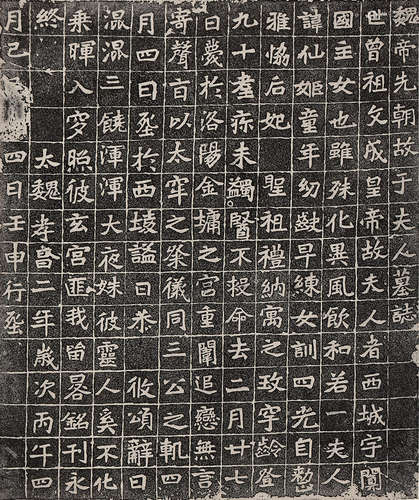 魏帝先朝故于夫人墓誌
世曾祖文成皇帝故夫人者西城宇闐
國主女也雖殊化異風飲和若一夫人
諱仙姬童年幼齓早練女訓四光自整
雅協后妃 聖祖禮納寓之玫宇齡登
九十耋疹未蠲醫不救命去二月廿七
日薨於洛陽金墉之宮重闈追戀無言
寄聲旨以太牢之祭儀同三公之軌四
月四日塟於西陵謚曰恭 攸頌辭曰
混混三饒渾渾大夜姝彼靈人奚不化
乘暉入穸照彼玄宮匪我留晷銘刊永
終 大魏孝昌二年歲次丙午四
月己 四日壬申行塟